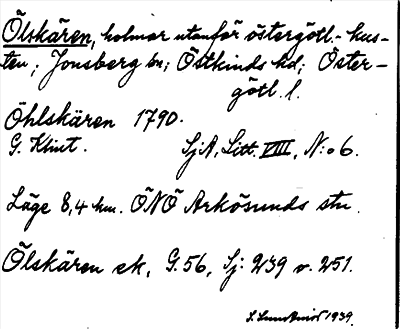 Ölskären, holmar utanför östergötl.-kus-
ten; Jonsberg sn; Östkinds hd; Öster-
götl. l.
Öhlskären 1790.
G. Klint. SjA, Litt. VIII, N:o 6.
Läge 8,4 km. ÖNÖ Arkösunds stn.
Ölskären ek, G. 56, Sj: 239 o. 251.
1939.